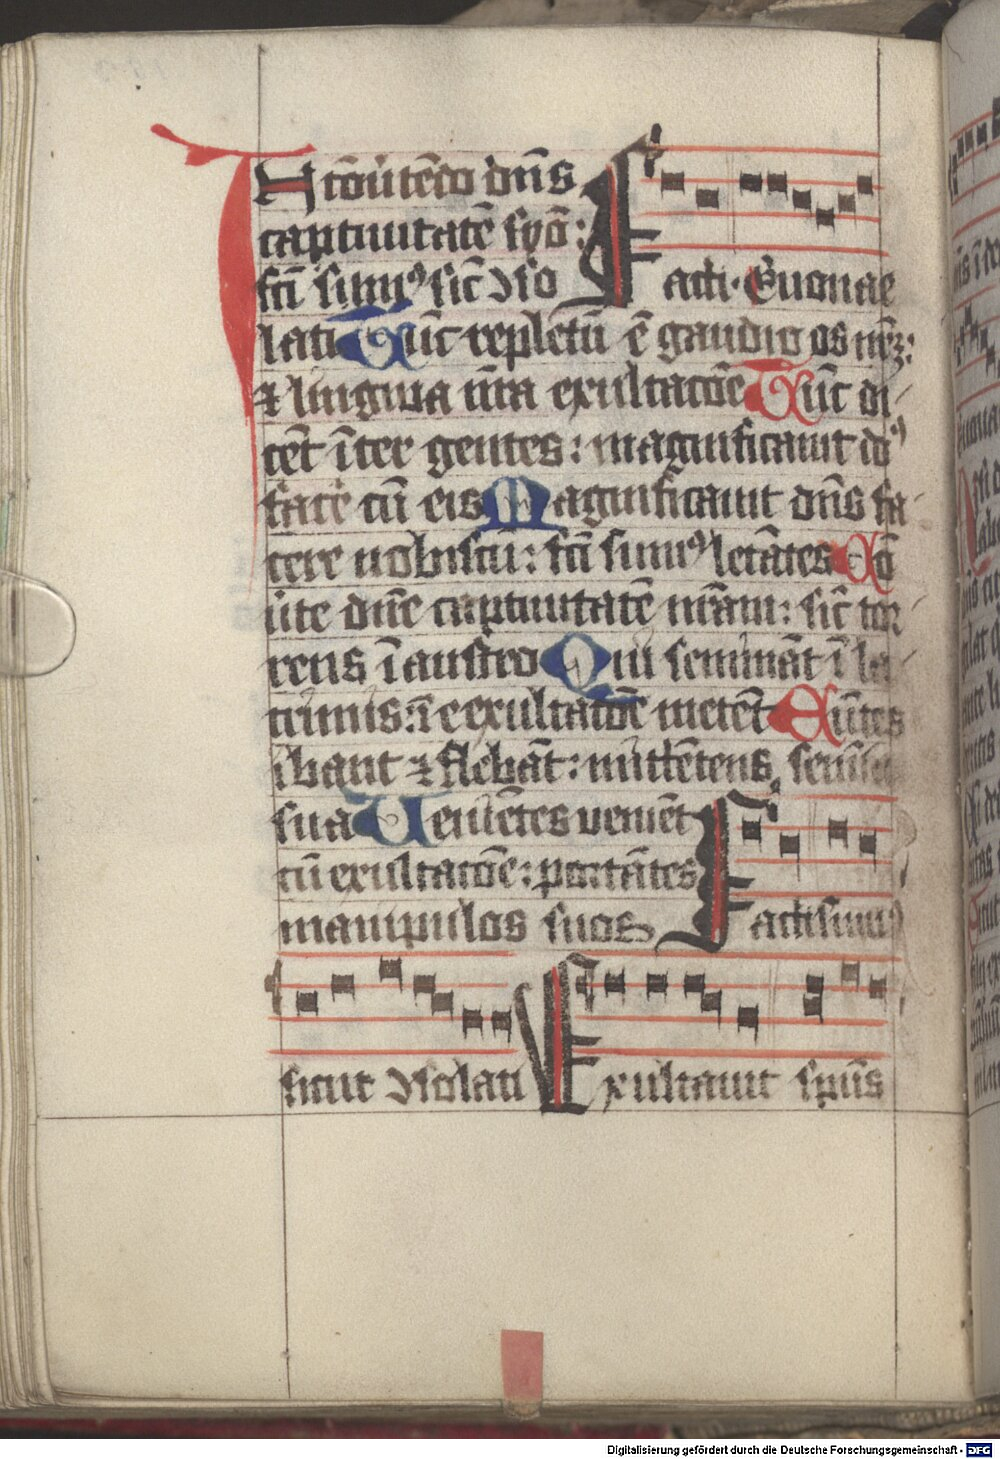 In cōu̅tēdo dn̄s
captiuitatē syō:
fcī sumꝰ sic̄ ↄso
Facti · Euouae
lati Tūc repletū ē gaudio os nr̄ꝫ:
⁊ lingwa nr̄a exultacōe Tūc di
cēt īter gentes: magnificauit dꝰ
facēre cū eis Magnificauit dn̄s fa
cere nobiscū: fcī sumꝰ letātes Cō
ūte dn̄e captiuitatē nr̄am: sic̄ tor
rens ī austro Qui semināt ī la
crimis: ī exultacōe metēt Eūtes
ibant ⁊ flebāt: mittētes semīa
sua Ueniētes veniēt
cū exultacōe: portātes
manipulos suos
Facti sumꝰ
sicut ↄsolati Exultauit spūs
Digitalisierung gefördert durch die Deutsche Forschungsgemeinschaft - DFG